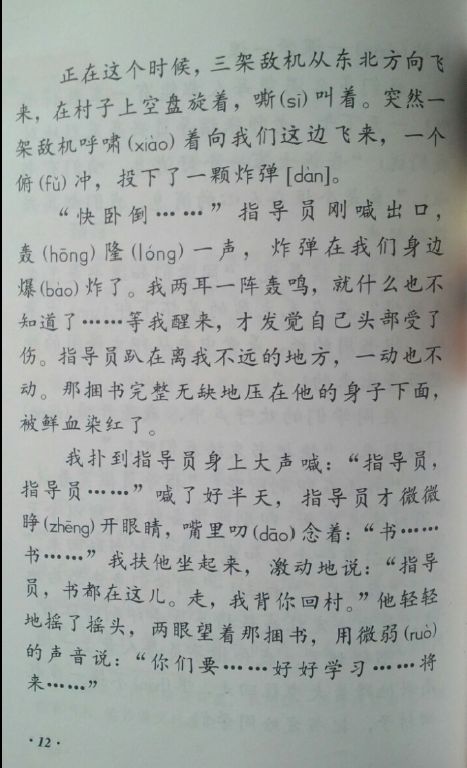 正在这个时候，三架敌机从东北方向飞
来，在村子上空盘旋着，嘶(sī)叫着。突然一
架敌机呼啸(xiào)着向我们这边飞来，一个
俯(fǔ)冲，投下了一颗炸弹[dàn]。
“快卧倒……”指导员刚喊出口，
轰(hōng)隆(lóng)一声，炸弹在我们身边
爆(bào)炸了。我两耳一阵轰鸣，就什么也不
知道了……等我醒来，才发觉自己头部受了
伤。指导员趴在离我不远的地方，一动也不
动。那捆书完整无缺地压在他的身子下面，
被鲜血染红了。
我扑到指导员身上大声喊：“指导员，
指导员……”喊了好半天，指导员才微微
睁(zhēng)开眼睛，嘴里叨(dāo)念着：“书……
书……”我扶他坐起来，激动地说：“指导
员，书都在这儿。走，我背你回村。”他轻轻
地摇了摇头，两眼望着那捆书，用微弱(ruò)
的声音说：“你们要……好好学习……将
来……”
·12·